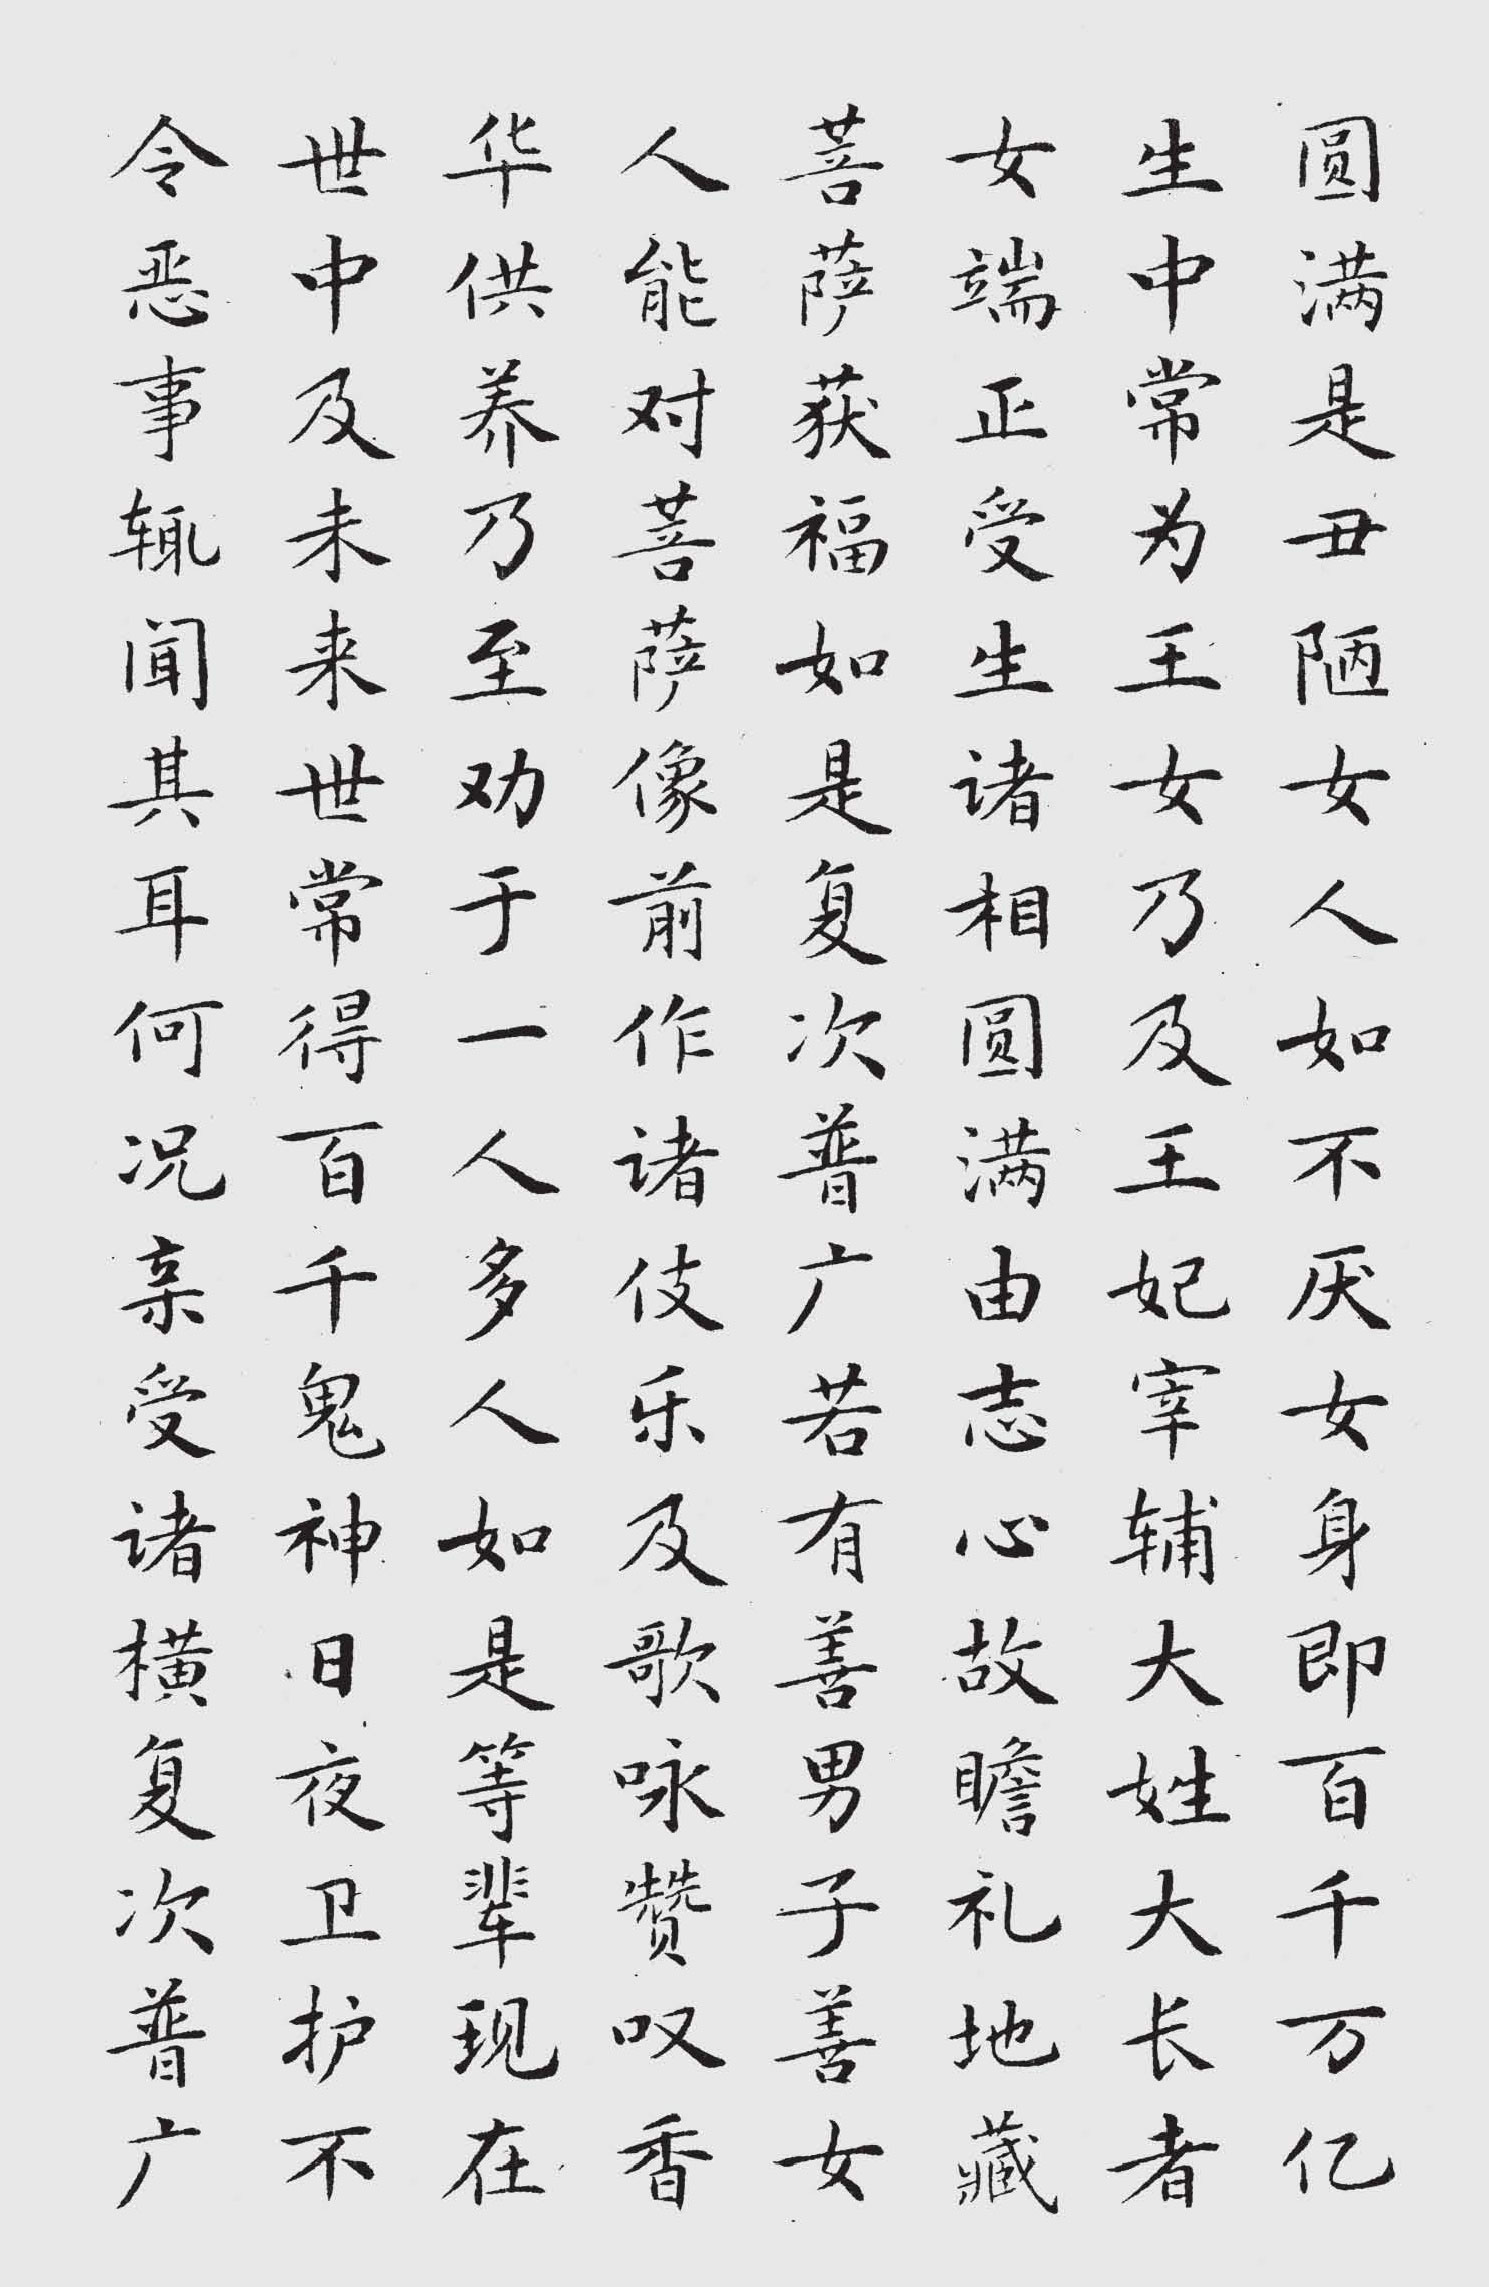 圆满是丑陋女人如不厌女身即百千万亿
生中常为王女乃及王妃宰辅大姓大长者
女端正受生诸相圆满由志心故瞻礼地藏
菩萨获福如是复次普广若有善男子善女
人能对菩萨像前作诸伎乐及歌咏赞叹香
华供养乃至劝于一人多人如是等辈现在
世中及未来世常得百千鬼神日夜卫护不
令恶事辄闻其耳何况亲受诸横复次普广